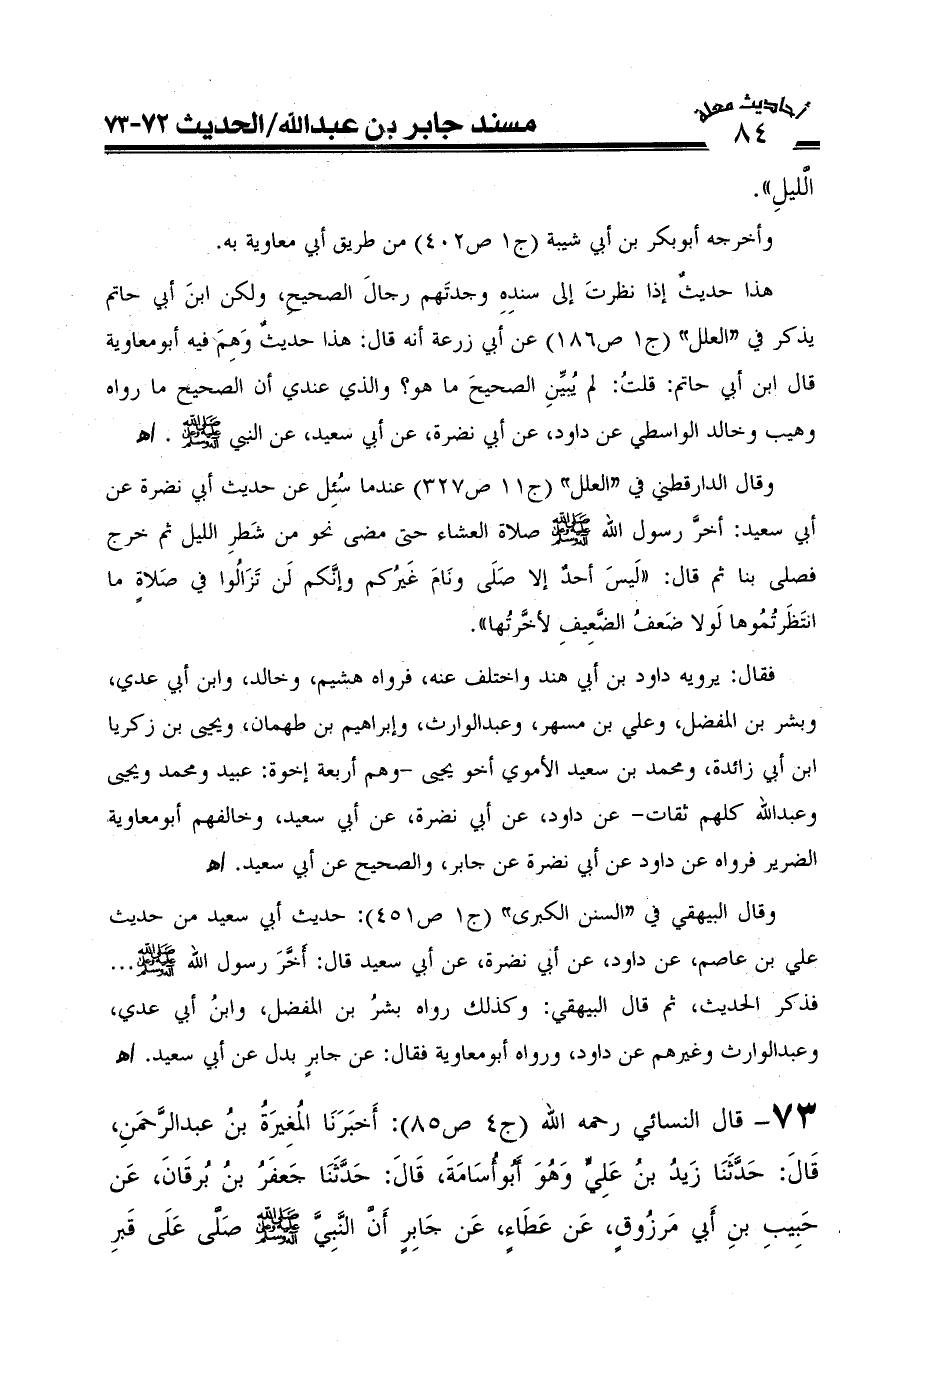 أحاديث معلة
٨٤
مسند جابر بن عبدالله/الحديث ٧٢-٧٣
الَّليلِ».
وأخرجه أبوبكر بن أبي شيبة (ج١ ص٤٠٢) من طريق أبي معاوية به.
هذا حديثٌ إذا نظرتَ إلى سندِهِ وجدتَهم رجالَ الصحيحِ، ولكن ابنَ أبي حاتم
يذكر في «العلل» (ج١ ص١٨٦) عن أبي زرعة أنه قال: هذا حديثٌ وَهِمَ فيه أبومعاوية
قال ابن أبي حاتم: قلتُ: لم يُبيِّنِ الصحيحَ ما هو؟ والذي عندي أن الصحيح ما رواه
وهيب وخالد الواسطي عن داود، عن أبي نضرة، عن أبي سعيد، عن النبي ﷺ . اﻫ
وقال الدارقطني في «العلل» (ج١١ ص٣٢٧) عندما سُئِل عن حديث أبي نضرة عن
أبي سعيد: أخرَّ رسول الله ﷺ صلاة العشاء حتى مضى نحو من شَطرِ الليل ثم خرج
فصلى بنا ثم قال: «لَيسَ أحدٌ إلا صَلَى ونَامَ غَيرُكم وإنَّكم لَن تَزَالُوا في صَلاةٍ ما
انتَظَرتُمُوها لَولا ضَعفُ الضَّعِيفِ لأخَّرتُها».
فقال: يرويه داود بن أبي هند واختلف عنه، فرواه هشيم، وخالد، وابن أبي عدي،
وبشر بن المفضل، وعلي بن مسهر، وعبدالوارث، وإبراهيم بن طهمان، ويحيى بن زكريا
ابن أبي زائدة، ومحمد بن سعيد الأموي أخو يحيى -وهم أربعة إخوة: عبيد ومحمد ويحيى
وعبدالله كلهم ثقات- عن داود، عن أبي نضرة، عن أبي سعيد، وخالفهم أبومعاوية
الضرير فرواه عن داود عن أبي نضرة عن جابر، والصحيح عن أبي سعيد. اﻫ
وقال البيهقي في «السنن الكبرى» (ج١ ص٤٥١): حديث أبي سعيد من حديث
علي بن عاصم، عن داود، عن أبي نضرة، عن أبي سعيد قال: أَخَّرَ رسول الله ﷺ...
فذكر الحديث، ثم قال البيهقي: وكذلك رواه بشرُ بن المفضل، وابنُ أبي عدي،
وعبدالوارث وغيرهم عن داود، ورواه أبومعاوية فقال: عن جابرٍ بدل عن أبي سعيد. اﻫ
٧٣- قال النسائي رحمه الله (ج٤ ص٨٥): أَخبَرَنَا المُغِيرَةُ بنُ عبدالرَّحمَنِ،
قَالَ: حَدَّثَنَا زَيدُ بنُ عَلِيٍّ وَهُوَ أَبُوأُسَامَةَ، قَالَ: حَدَّثَنَا جَعفَرُ بنُ بُرقَانَ، عَن
حَبِيبِ بنِ أَبي مَرزُوقٍ، عَن عَطَاءٍ، عَن جَابِرٍ أَنَّ النَّبِيَّ ﷺ صَلَّى عَلَى قَبرِ